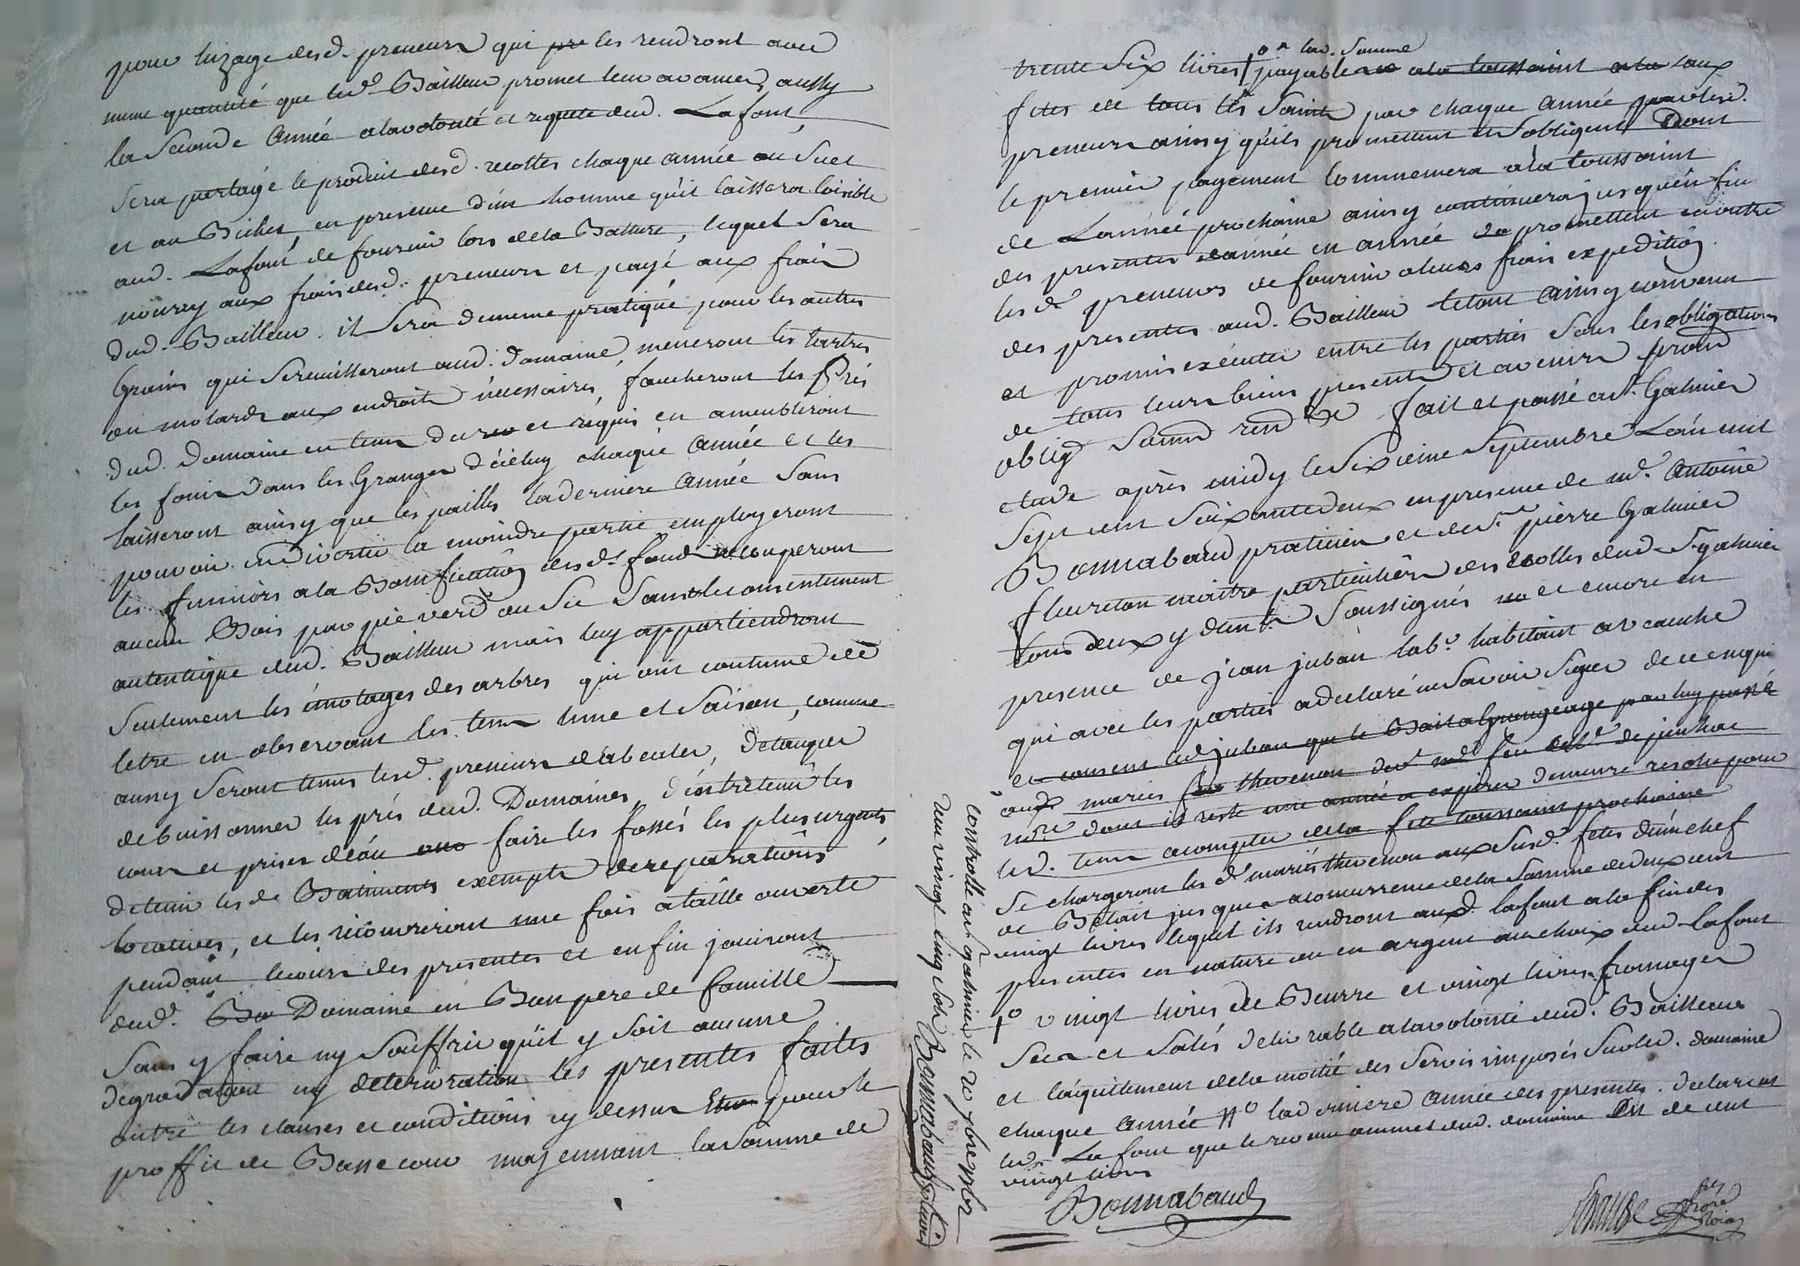 pour luzage desd. preneurs qui pre les rendront avec
meme quantité que led. Bailleur promet leur avancer, aussy
la seconde année a la volonté et requete dud. Lafont,
sera partagé le produit desd. recottes chaque année au suet
et au Bichet, en presence d'un homme qu'il laissera loisible
aud. Lafont de fournir lors de la Batture, lequel sera
nourry aux frais desd. preneurs et payé aux frais
dud. Bailleur. il sera de meme pratiqué pour les autres
Grains qui se reuilleront aud. domaine, meneront les tertres
ou motards aux endroits nécessaires, faucheront les Prés
dud. domaine en tems du et réquis en ameubleront
les foins dans les Granges d'iceluy chaque année et les
laisseront ainsy que les pailles la derniere année sans
pouvoir en divertir la moindre partie employeront
les fumiers a la Bonification desd. fonds ne couperont
aucun Bois par pié verd ou sec sans le consentement
autentique dud. Bailleur mais luy appartiendront
seulement les émotages des arbres qui ont coutume de
letre en observant les tems lune et saison, comme
aussy seront tenus lesd. preneurs
de buissonner les prés dud. Domaine, d'entretenir les
cours et prises d'eau faire les fossés les plus urgents
de tenir les de Batiments exempts de reparations
locatives, et les récouvriront une fois a taille ouverte
pendant le cours des presentes et enfin jouiront
dud. Bo Domaine en Bon pere de famille
sans y faire ny souffrir qu'il y soit aucune
degradation ny deterioration les presentes faites
outre les clauses et conditions cy dessus pour le
proffit de Basse cour moyennant la somme de
trente six livres payable a la toussaint aux
lad. somme
fetes de tous les saints par chaque année par lesd.
preneurs ainsy qu'ils promettent et s'obligent Dont
le premier payement commencera a la toussaint
de L'année prochaine ainsy continuera jusqu'en fin
des presentes d'année en année promettent en outre
les d. preneurs de fournir a leurs frais expedition
des presentes aud. Bailleur le tout ainsy convenu
et promis exécuter entre les parties sous les obligations
de tous leurs biens presents et avenir
oblig. Fait et passé a St. Galmier
etude après midy le sixieme septembre L'an mil
sept cent soixante deux en presence de me. Antoine
Bonnabaud praticien et de sr. pierre Galmier
fleureton maitre particulier des ecolles dud. St galmier
tous deux y dem. soussignés et encore en
presence de jean juban lab. habitant
qui avec les parties a declaré ne savoir signer de ce enquis
et consent led juban que le Bail a Grangeage par luy passé
aux mariés thevenon
nre. dont il reste une année a expirer demeure resolu pour
led. tems a compter de la fete toussaint prochaine
Se chargeront les d. mariés thevenon aux susd. fetes d'un chef
de Bétail jusques a concurrence de la somme de deux cent
vingt livres lequel ils rendront aud. lafont a la fin des
presentes en nature ou en argent au choix dud. lafont
+° vingt livres de Beurre et vingt livres fromages
secs et salés delivrable a la volonté dud. Bailleur
et l'aquitement de la moitié des servis imposés sur led. domaine
chaque année la derniere année des presentes. declarant
led. La font que le revenu annuel dud. domaine Est de cent
vingt livres
Bonnabaud
controllé a st galmier le 20 7bre 1762
reçu vingt cinq sols Bonnabaud